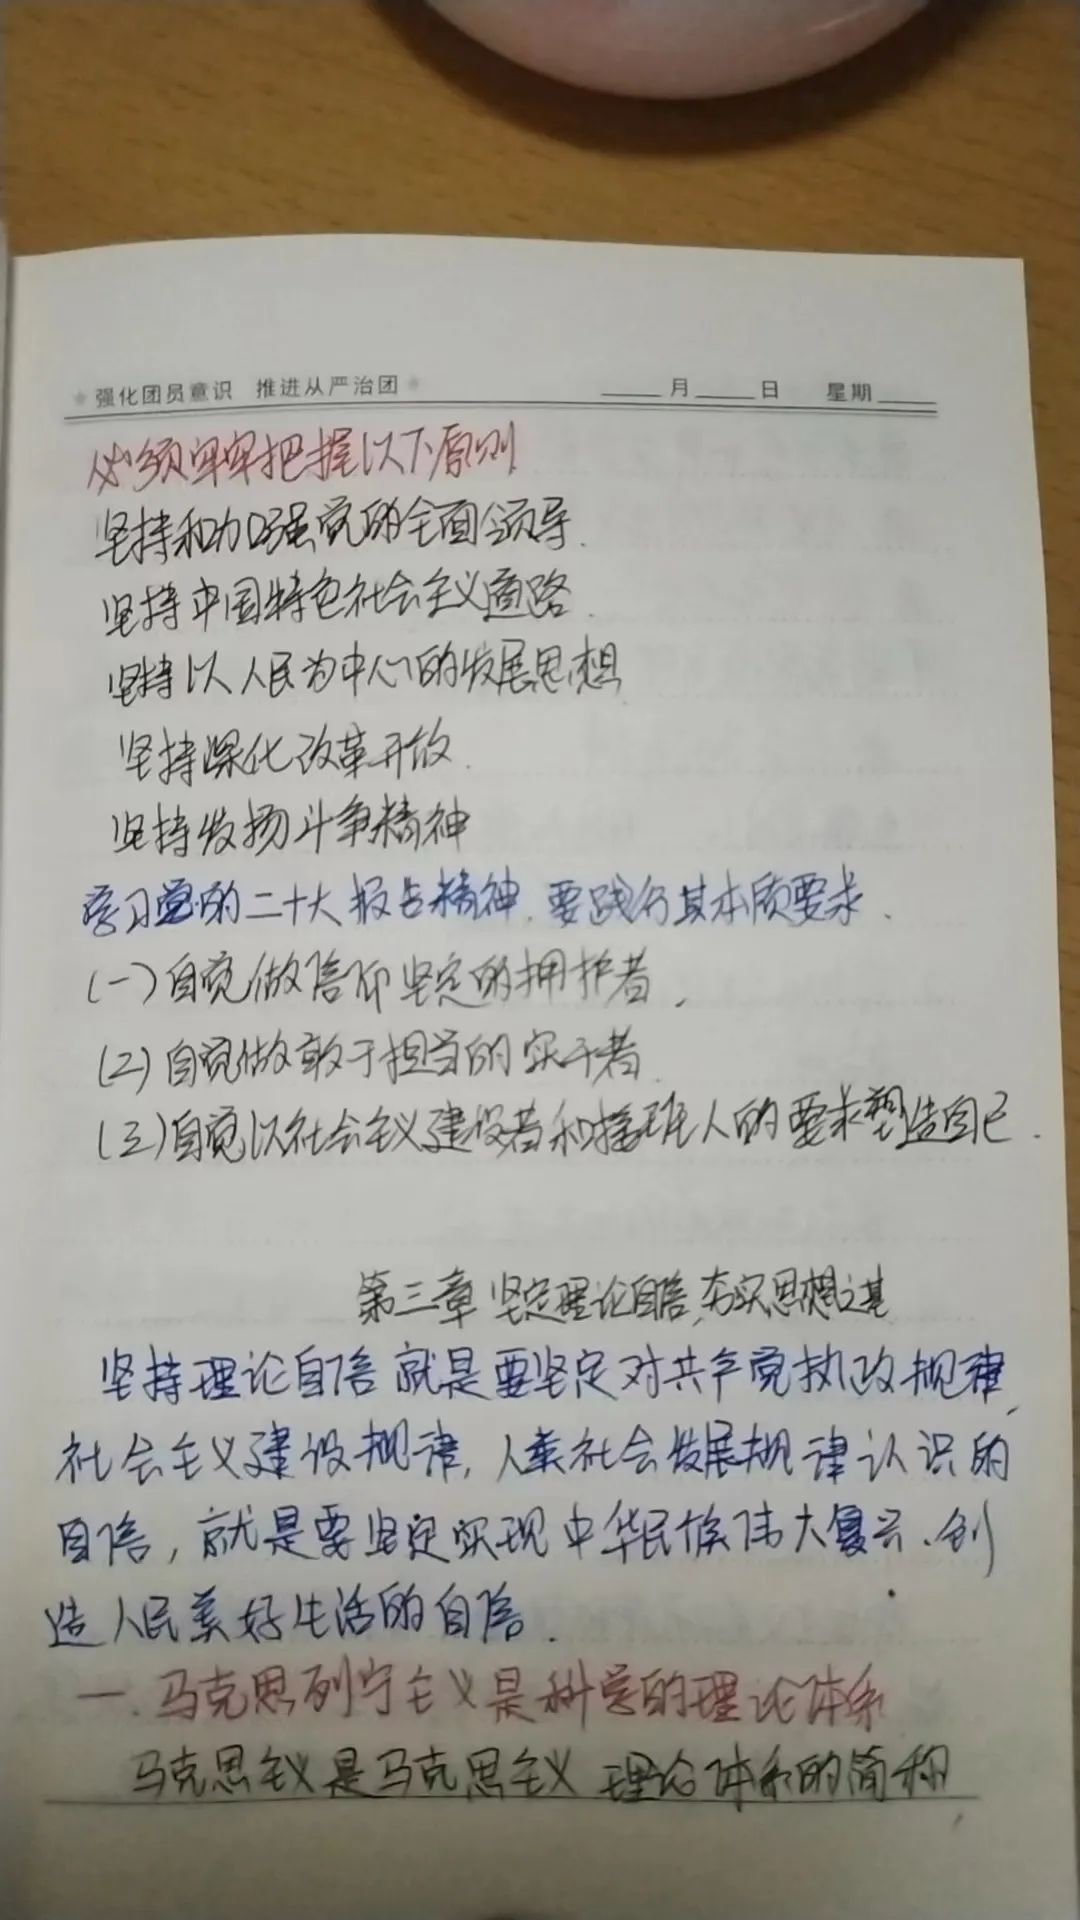 强化团员意识 推进从严治团 ____月____日 星期____
必须牢牢把握以下原则
坚持和加强党的全面领导.
坚持中国特色社会主义道路.
坚持以人民为中心的发展思想
坚持深化改革开放.
坚持发扬斗争精神
学习党的二十大报告精神.要践行其本质要求.
(一)自觉做信仰坚定的拥护者.
(2)自觉做敢于担当的实干者.
(三)自觉以社会主义建设者和接班人的要求塑造自己.
第三章 坚定理论自信,夯实思想之基
坚持理论自信就是要坚定对共产党执政规律,
社会主义建设规律,人类社会发展规律认识的
自信,就是要坚定实现中华民族伟大复兴、创
造人民美好生活的自信.
一.马克思列宁主义是科学的理论体系
马克思主义是马克思主义理论体系的简称